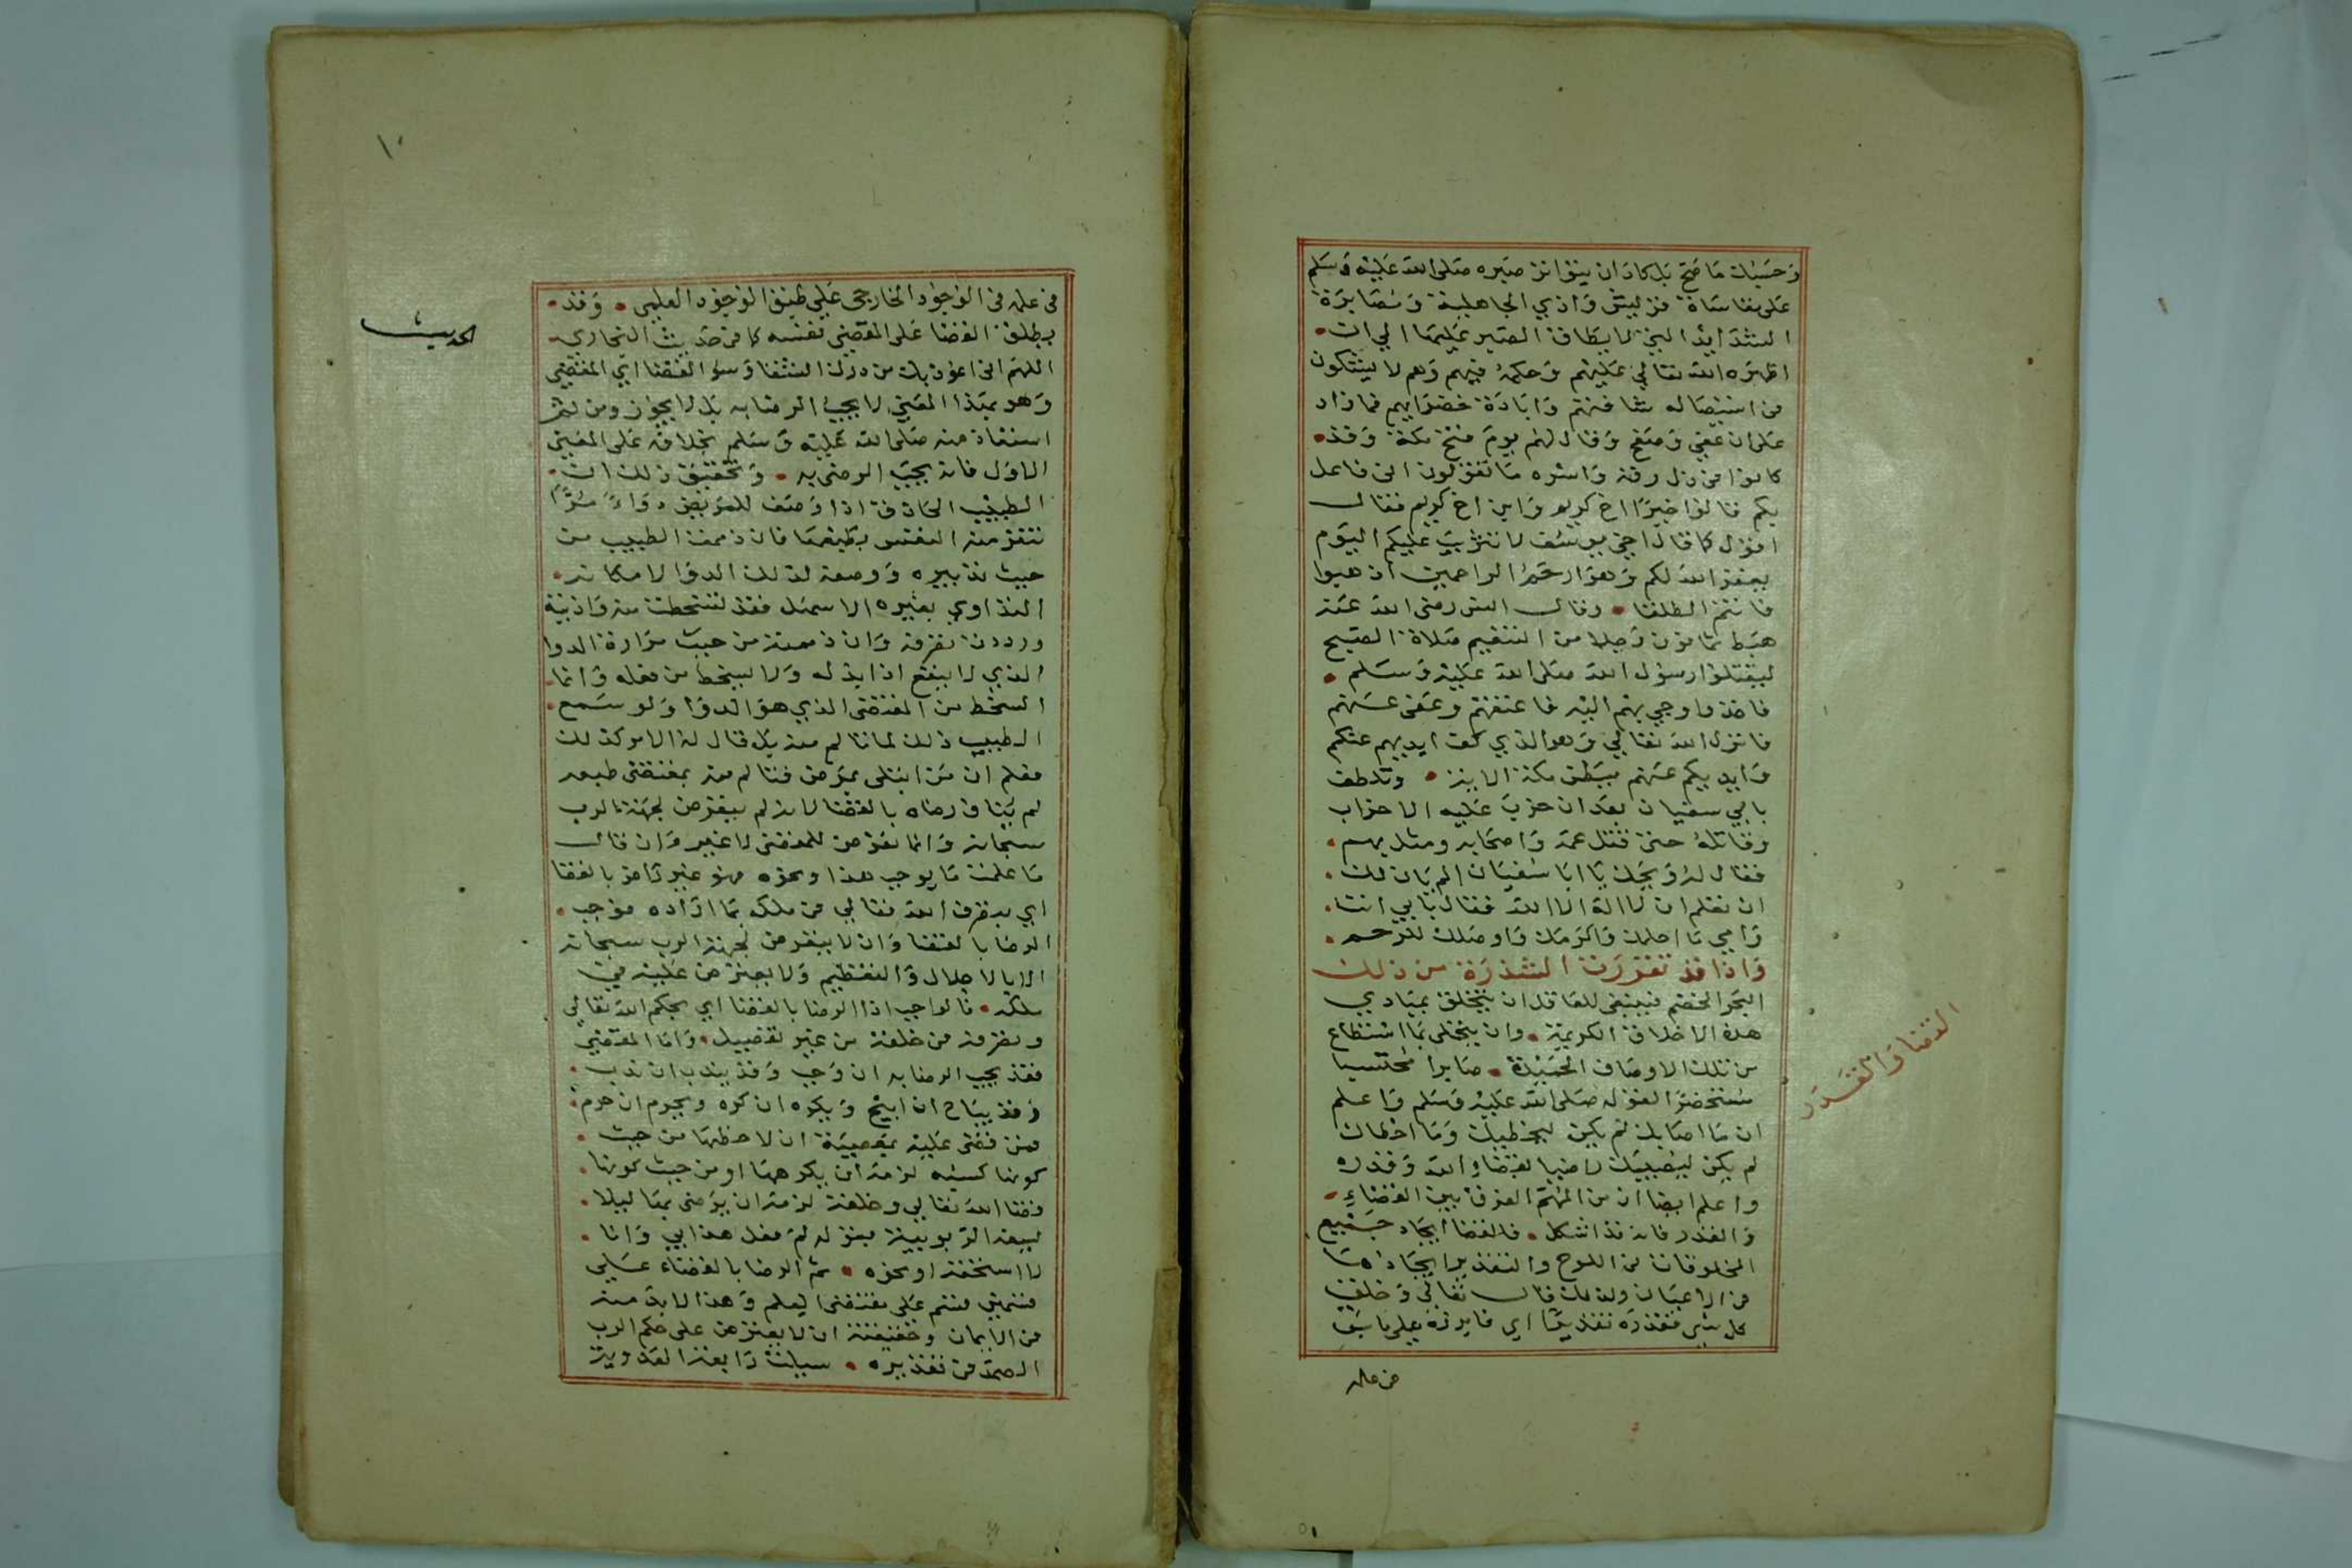 وحسبك ما صح بل كاد ان يتواتر صبره صلى الله عليه وسلم
على مقاساة قريش واذي الجاهلية ومصابرة
الشدايد التي لا يطاق الصبر عليها الي ان
اظهره الله تعالي عليهم وحكمه فيهم وهم لا يشكون
في استيصاله شافتهم وابادة خضرايهم فما زاد
على ان عفي وصفح وقال لهم يوم فتح مكة وقد
كانوا في ذل رقه واسره ما تقولون اني فاعل
بكم قالوا خيرا اخ كريم وابن اخ كريم فقال
اقول كما قال اخي يوسف لا تثريب عليكم اليوم
يغفر الله لكم وهو ارحم الراحمين اذهبوا
فانتم الطلقا وقال انس رضى الله عنه
هبط ثمانون رجلا من التنعيم صلاة الصبح
ليقتلوا رسول الله صلى الله عليه وسلم
فاخذوا وجي بهم اليه فاعتقهم وعفى عنهم
فانزل الله تعالي وهو الذي كف ايديهم عنكم
وايديكم عنهم ببطن مكة الاية وتلطف
بابي سفيان بعد ان حزب عليه الاحزاب
وقاتله حتى قتل عمه واصحابه ومثل بهم
فقال له ويحك يا ابا سفيان الم يان لك
ان تعلم ان لا اله الا الله فقال بابي انت
وامي ما احلمك واكرمك واوصلك للرحم
واذا قد تقررت الشذرة من ذلك
البحر الخضم فينبغي للعاقل ان يتخلق بمبادي
هذه الاخلاق الكريمة وان يتحلى بما استطاع
من تلك الاوصاف الحميدة صابرا محتسبا
مستحضرا لقوله صلى الله عليه وسلم واعلم
ان ما اصابك لم يكن ليخطيك وما اخطاك
لم يكن ليصيبك راضيا بقضاء الله وقدره
واعلم ايضا ان من المهم الفرق بين القضاء
والقدر فانه قد اشكل فالقضا ايجاد جميع
المخلوقات في اللوح والتقدير ايجادها
في الاعيان ولذلك قال تعالى وخلق
كل شي فقدره تقديرا اي فابرزه على ما سبق
في علمه
القضا والقدر
في علمه في الوجود الخارجي علي طبق الوجود العلمي وقد
يطلق القضا على المقضي نفسه كما في حديث البخاري
اللهم اني اعوذ بك من درك الشقا وسو القضا اي المقضي
وهو بهذا المعني لا يجب الرضا به بل لا يجوز ومن ثم
استعاذ منه صلى الله عليه وسلم بخلافه على المعني
الاول فانه يجب الرضى به وتحقيق ذلك ان
الطبيب الحاذق اذا وصف للمريض دواء مرا
تنفر منه النفس بطبعها فان ذممت الطبيب من
حيث تدبيره ووصفه لذلك الدوا لامكانه
التداوي بغيره الاسهل فقد تسخطت منه واذيته
ورددت تصرفه وان ذممته من حيث مرارة الدوا
الذي لا ينفع اذا يذله ولا يسخط من فعله وانما
السخط من المقتضى الذي هو الدوا ولو سمع
الطبيب ذلك لما تالم منه بل قال له الامر كذلك
فعلم ان من ابتلي بمرض فتالم منه بمقتضى طبعه
لم يناف رضاه بالقضا لانه لم يتعرض لجهة الرب
سبحانه وانما تعرض للمقضى لا غير وان قال
ما علمت ما يوجب هذا ونحوه فهو غير راض بالقضا
اي بتصرف الله تعالي في ملكه بما اراده فوجب
الرضا بالقضا وان لا يتعرض لجهة الرب سبحانه
الا بالاجلال والتعظيم ولا يعترض عليه في
ملكه فالواجب اذا الرضا بالقضا اي بحكم الله تعالي
وتصرفه في خلقه من غير تفصيل واما المقضي
فقد يجب الرضا به ان وجب وقد يندب ان ندب
وقد يباح ان ابيح ويكره ان كره ويحرم ان حرم
فمن قضى عليه بمعصية ان لاحظها من حيث
كونها كسبه لزمه ان يكرهها او من حيث كونها
قضا الله تعالي وخلقه لزمه ان يرضى بها ليلا
يسفه الربوبية بقوله لم فعل هذا بي وانا
لا استحقه او نحوه ثم الرضا بالقضاء على
قسمين قسم على مقتضى العلم وهذا لا بد منه
في الايمان وحقيقته ان لا يعترض على حكم الرب
الصمد في تقديره سيلت رابعة العدوية
الحديث
١٠